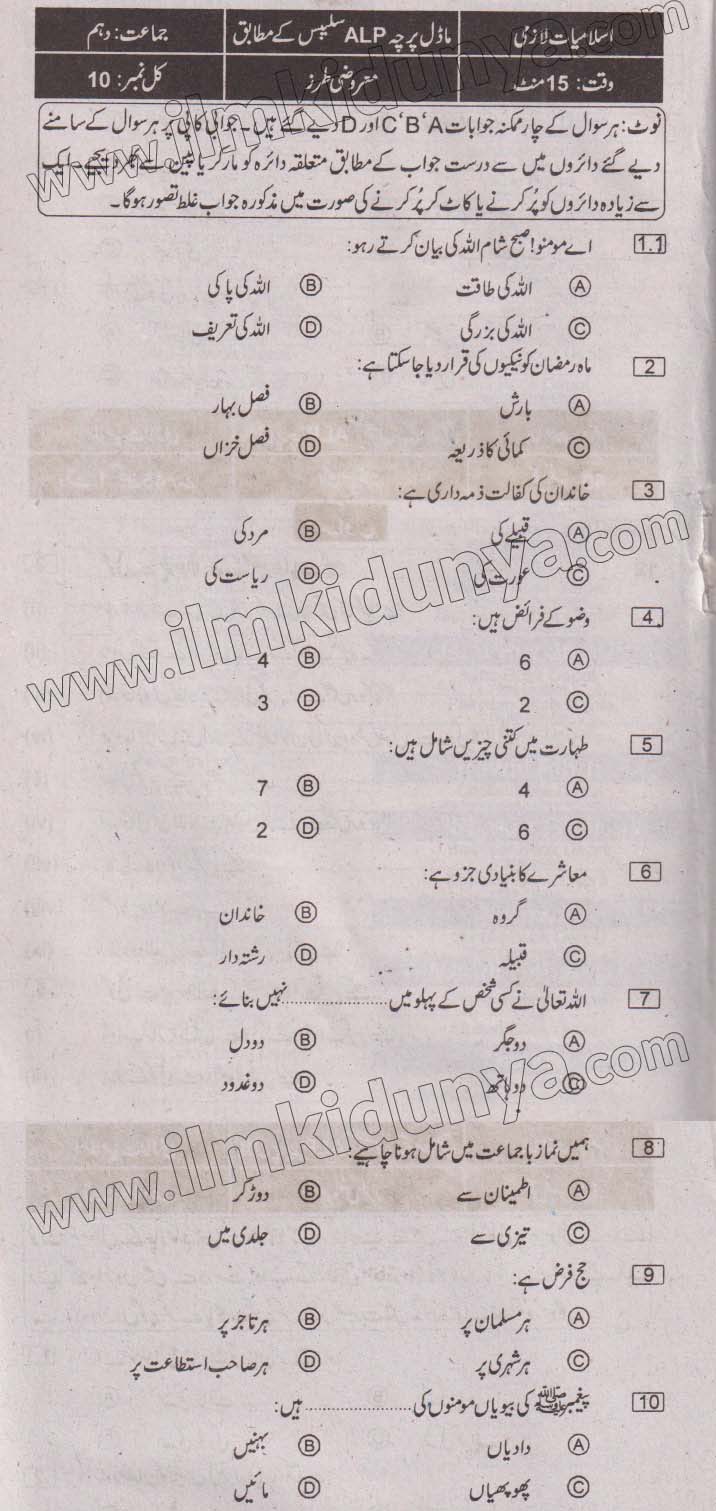 اسلامیات لازمی ماڈل پرچہ ALP سلیبس کے مطابق جماعت: دہم
وقت: 15 منٹ معروضی طرز کل نمبر: 10
نوٹ: ہر سوال کے چار ممکنہ جوابات A‘B‘C اور D دیے گئے ہیں۔ جوابی کاپی پر ہر سوال کے سامنے
دیے گئے دائروں میں سے درست جواب کے مطابق متعلقہ دائرہ کو مارکر یا پین سے بھر دیجیے۔ ایک
سے زیادہ دائروں کو پُر کرنے یا کاٹ کر پُر کرنے کی صورت میں مذکورہ جواب غلط تصور ہوگا۔
1.1 اے مومنو! صبح شام اللہ کی بیان کرتے رہو:
A اللہ کی طاقت B اللہ کی پاکی
C اللہ کی بزرگی D اللہ کی تعریف
2 ماہ رمضان کو نیکیوں کی قرار دیا جا سکتا ہے:
A بارش B فصل بہار
C کمائی کا ذریعہ D فصل خزاں
3 خاندان کی کفالت ذمہ داری ہے:
A قبیلے کی B مرد کی
C عورت کی D ریاست کی
4 وضو کے فرائض ہیں:
A 6 B 4
C 2 D 3
5 طہارت میں کتنی چیزیں شامل ہیں:
A 4 B 7
C 6 D 2
6 معاشرے کا بنیادی جزو ہے:
A گروہ B خاندان
C قبیلہ D رشتہ دار
7 اللہ تعالیٰ نے کسی شخص کے پہلو میں .................... نہیں بنائے:
A دو جگر B دو دل
C دو ہاتھ D دو غدود
8 ہمیں نماز با جماعت میں شامل ہونا چاہیے:
A اطمینان سے B دوڑ کر
C تیزی سے D جلدی میں
9 حج فرض ہے:
A ہر مسلمان پر B ہر تاجر پر
C ہر شہری پر D ہر صاحب استطاعت پر
10 پیغمبر ﷺ کی بیویاں مومنوں کی .................... ہیں:
A دادیاں B بہنیں
C پھوپھیاں D مائیں
www.ilmkidunya.com
www.ilmkidunya.com
www.ilmkidunya.com